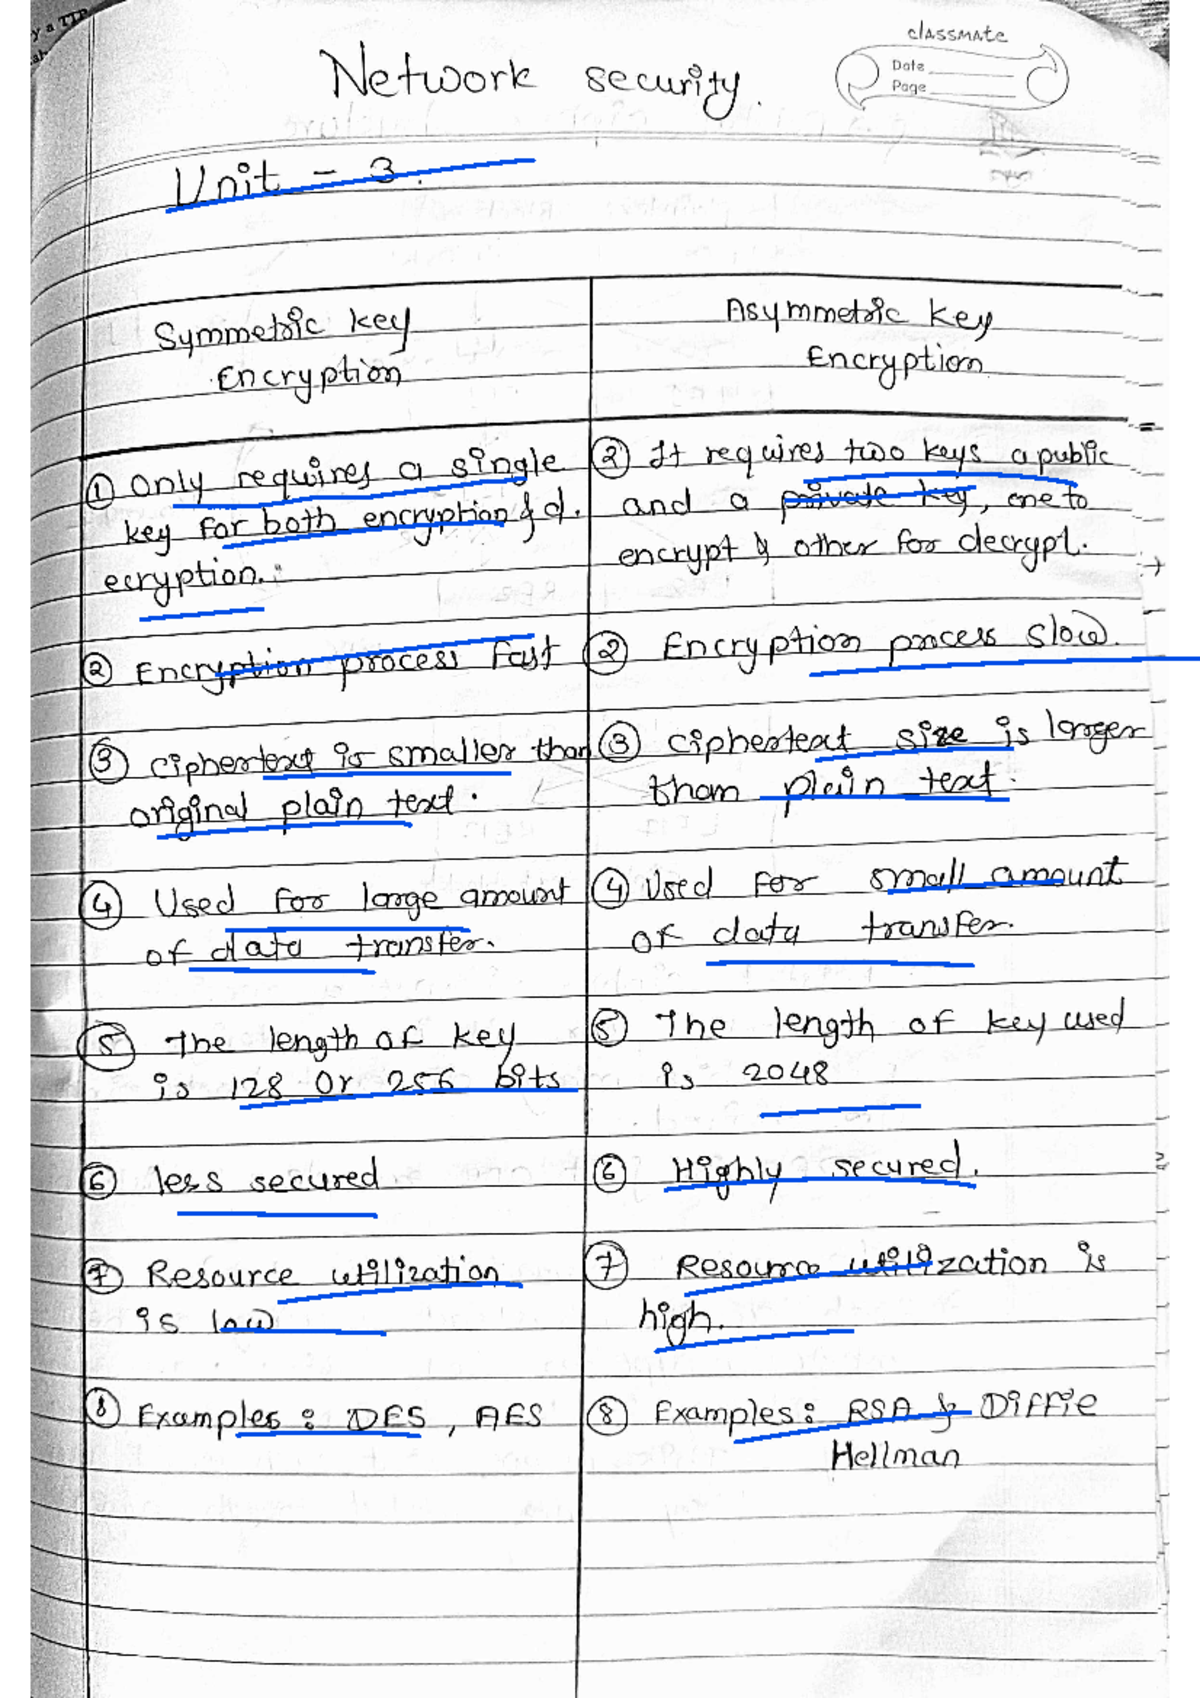 classmate
Date
Page
Network security.
Unit - 3.
Symmetric key
Encryption
① Only requires a single
key for both encryption & d.
ecryption.
② Encryption process Fast
③ ciphertext is smaller than
original plain text.
④ Used for large amount
of data transfer.
⑤ The length of key
is 128 or 256 bits
⑥ less secured
⑦ Resource utilization
is low
⑧ Examples: DES, AES
Asymmetric key
Encryption
② It requires two keys a public
and a private key, one to
encrypt & other for decrypt.
② Encryption process slow.
③ ciphertext size is larger
than plain text.
④ Used for small amount
of data transfer.
⑤ The length of key used
is 2048
⑥ Highly secured.
⑦ Resource utilization is
high.
⑧ Examples: RSA & Diffie
Hellman